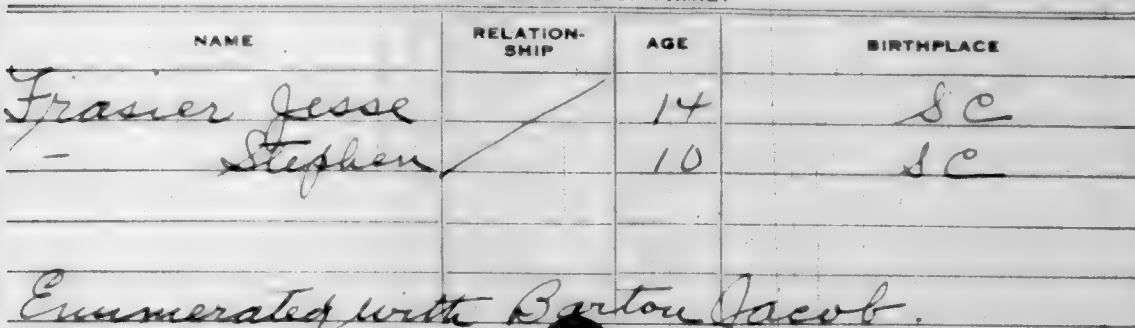 NAME RELATION-SHIP AGE BIRTHPLACE
Frasier Jesse 14 S C
— Stephen 10 S C
Enumerated with Barton Jacob.